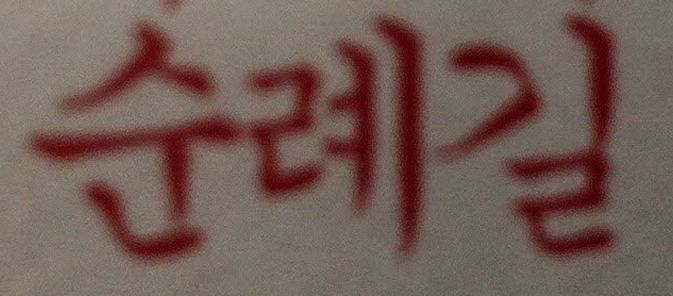 순례길